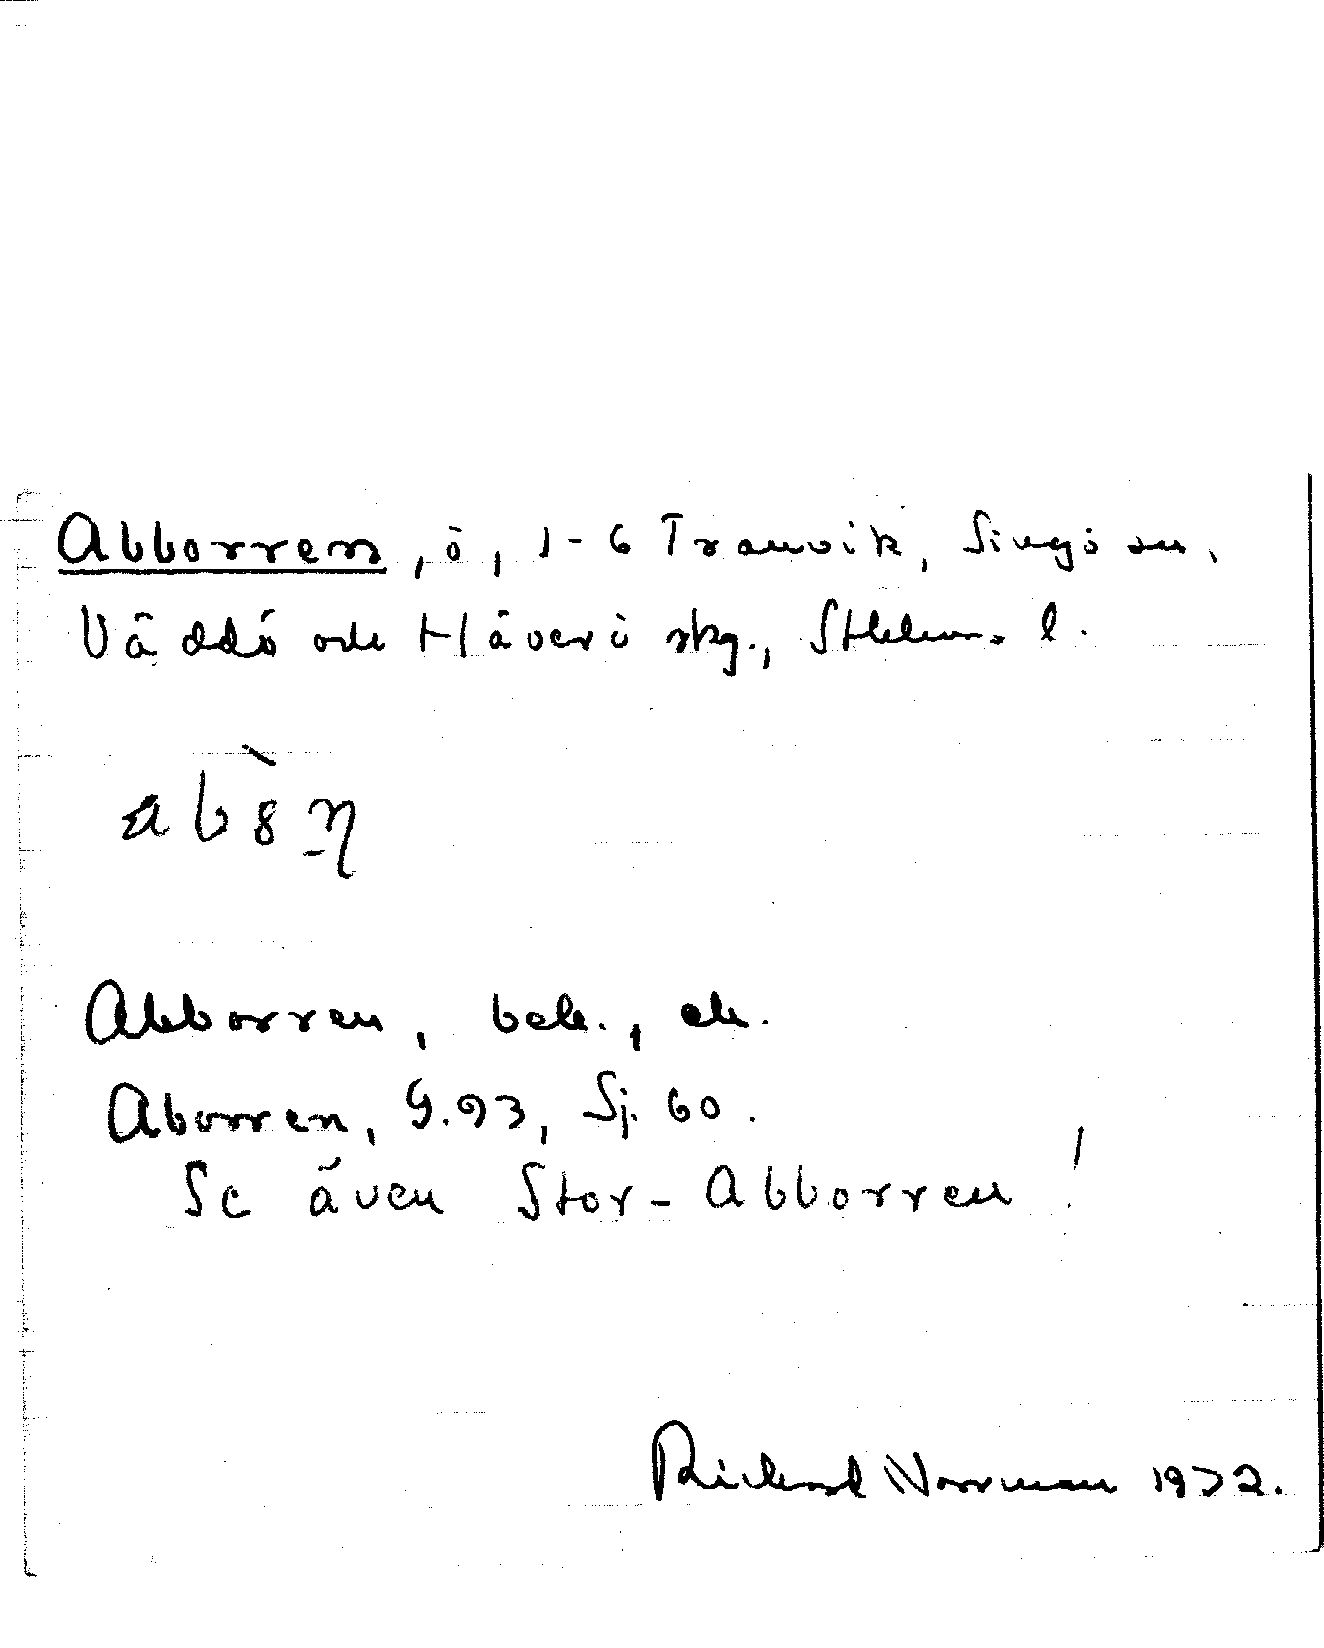 Abborren, ö, 1-6 Tranvik, Singö sn,
Väddö och Häverö skg., Sthlms l.
Abborren, bek., ek.
Aborren, G.93, Sj. 60.
Se även Stor-Abborren!
Richard Norrman 1972.